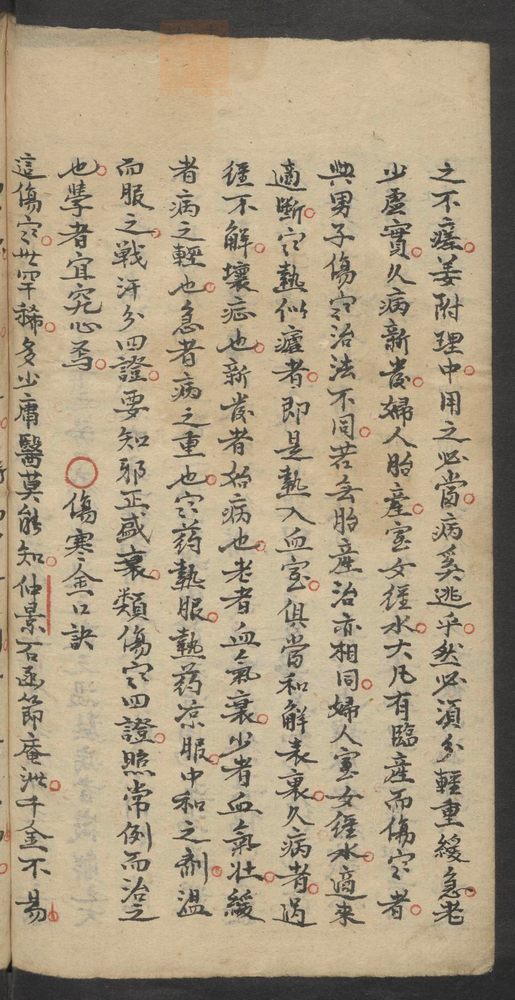 之不瘥姜附理中用之必當病奚逃乎然必須分輕重緩急老
少虛實久病新發婦人胎產室女經水大凡有臨產而傷寒者
與男子傷寒治法不同若無胎產治亦相同婦人室女經水適來
適斷寒熱似瘧者即是熱入血室俱當和解表裏久病者過
經不解壞症也新發者始病也老者血氣衰少者血氣壯緩
者病之輕也急者病之重也寒药熱服熱药凉服中和之劑溫
而服之戰汗分四證要知邪正盛衰類傷寒四證照常例而治之
也學者宜究心焉 〇傷寒金口訣
這傷寒世罕稀多少庸醫莫能知仲景石函節庵泄千金不易